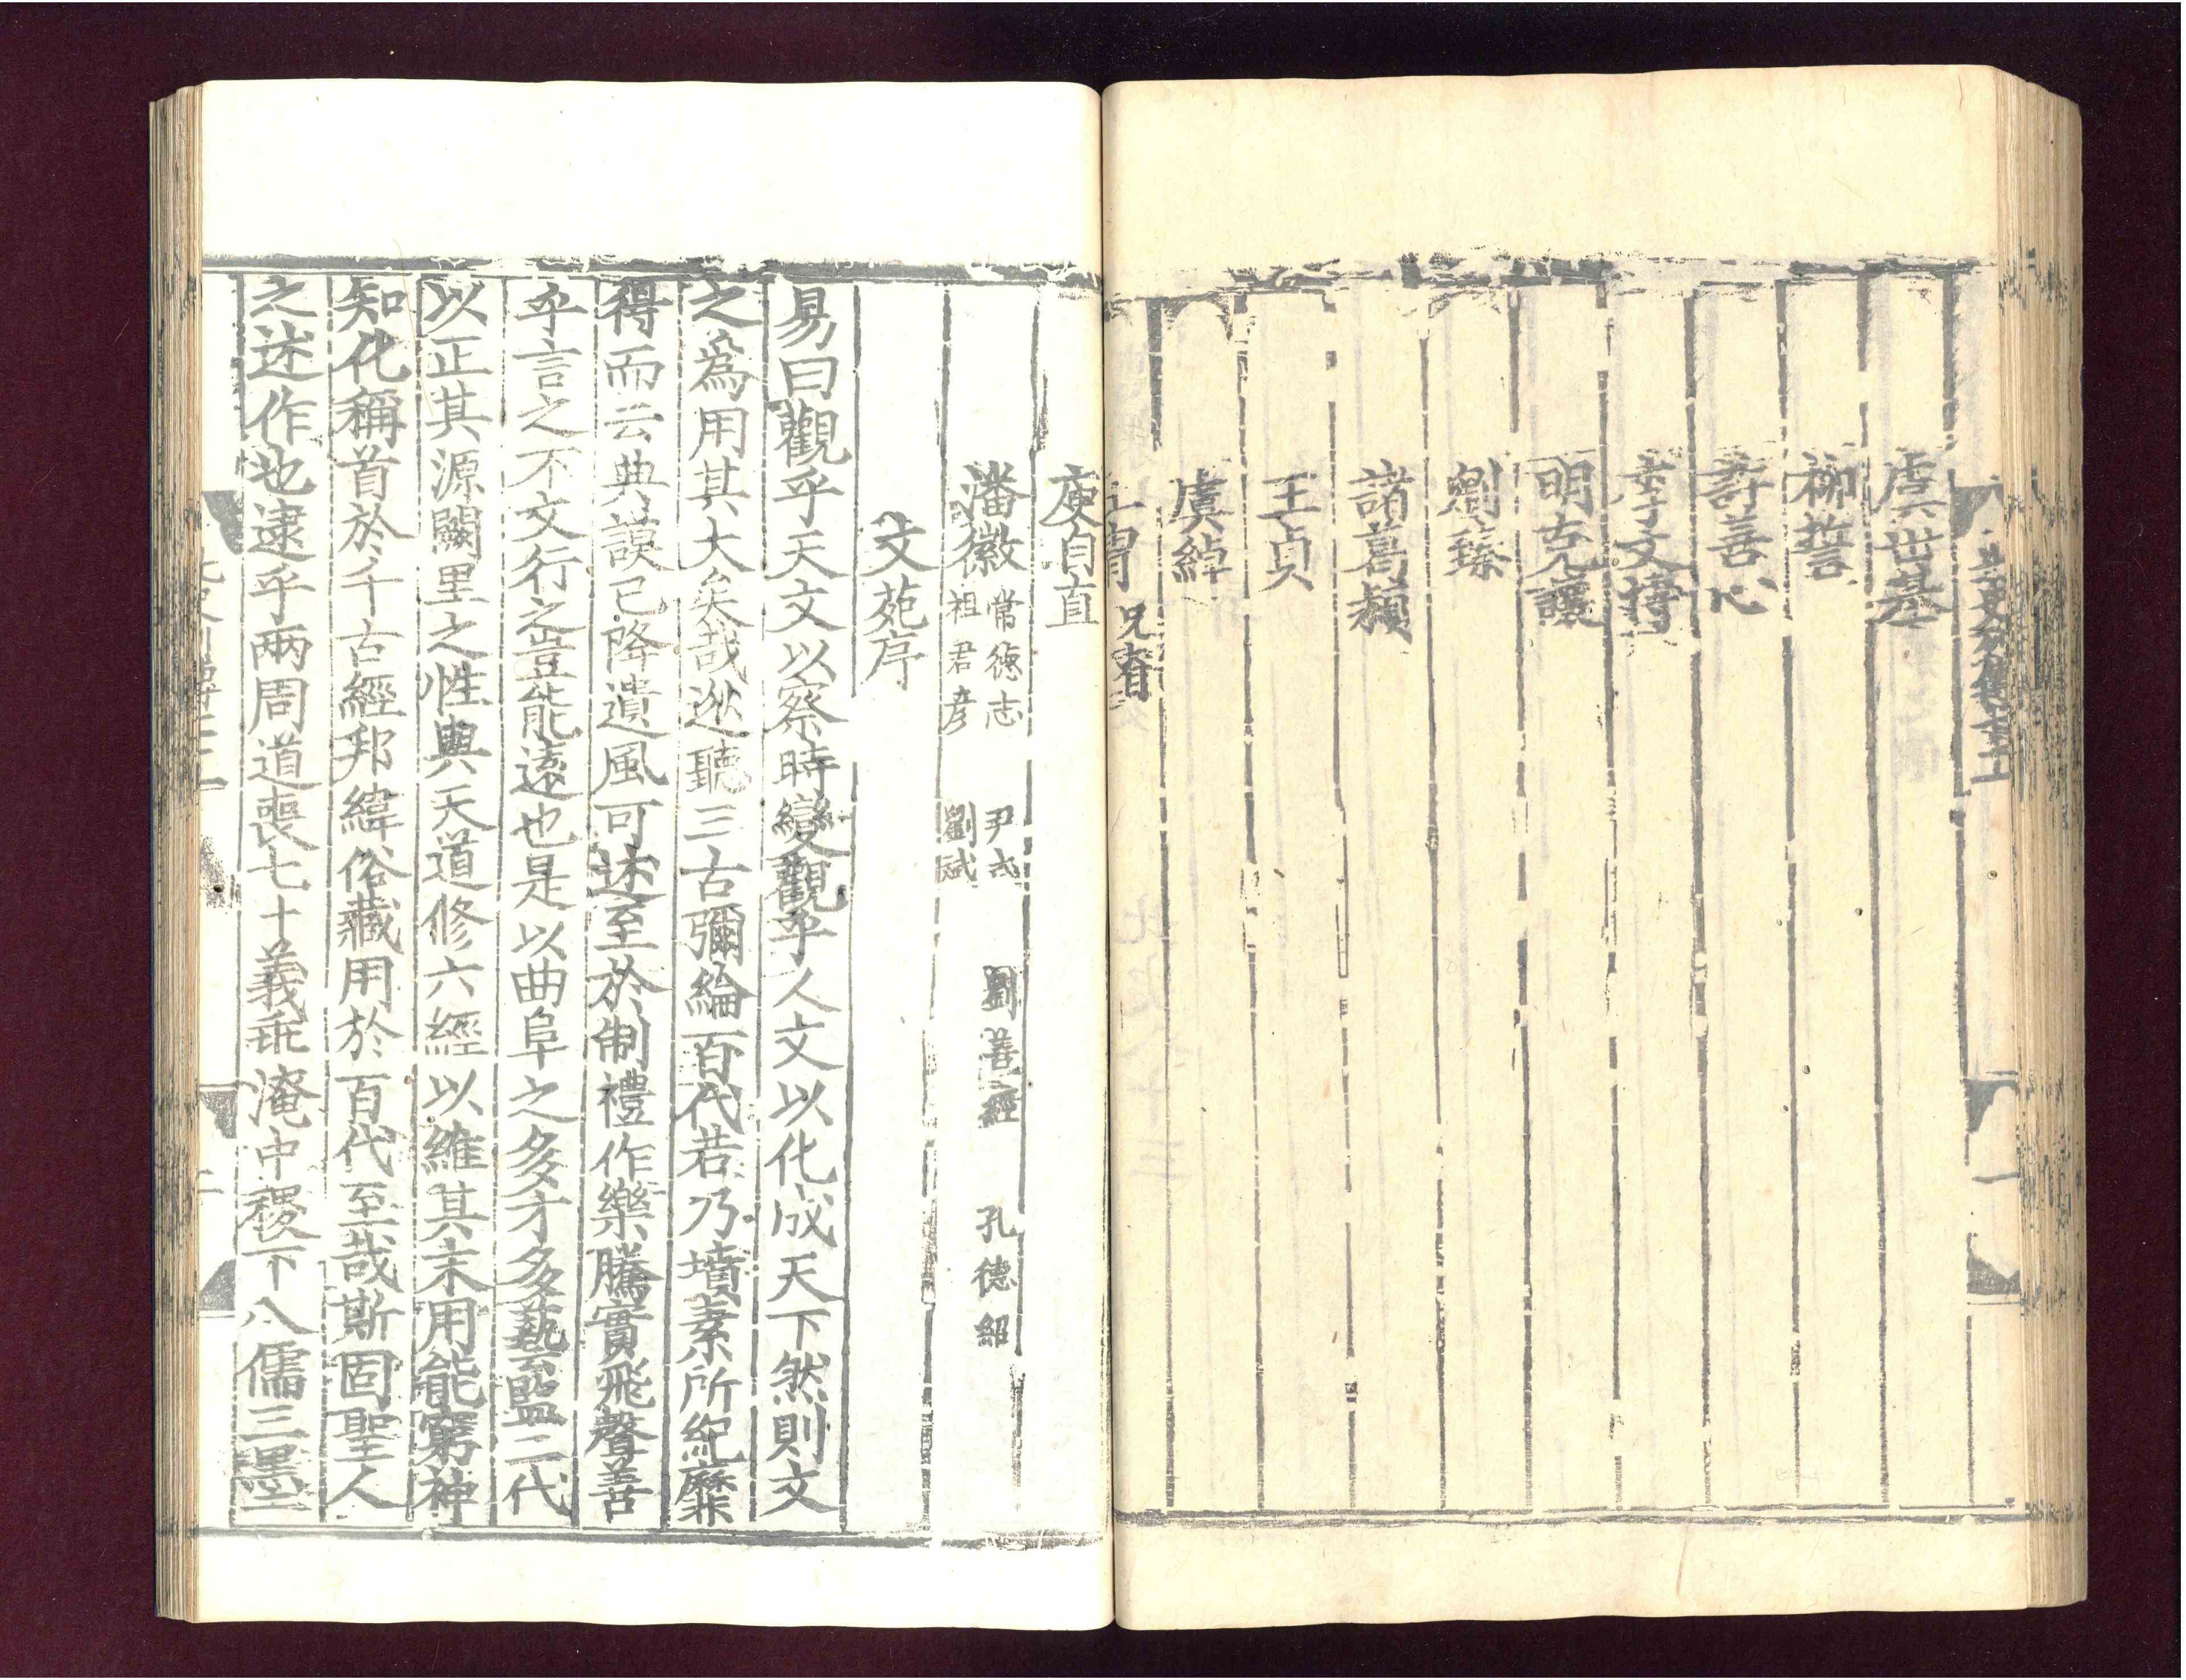 虞世基
柳䛒
許善心
李文博
明克讓
劉臻
諸葛潁
王貞
虞綽
王冑 兄眘
庾自直
潘徽 常德志 尹式 劉善經 孔德紹
祖君彦 劉斌
文苑序
易曰觀乎天文以察時變觀乎人文以化成天下然則文
之為用其大矣哉逖聽三古彌綸百代若乃墳素所紀靡
得而云典謨已降遺風可述至於制禮作樂騰實飛聲善
乎言之不文行之豈能遠也是以曲阜之多才多藝監二代
以正其源闕里之性與天道修六經以維其末用能窮神
知化稱首於千古經邦緯俗藏用於百代至哉斯固聖人
之述作也逮乎兩周道喪七十義乖淹中稷下八儒三墨